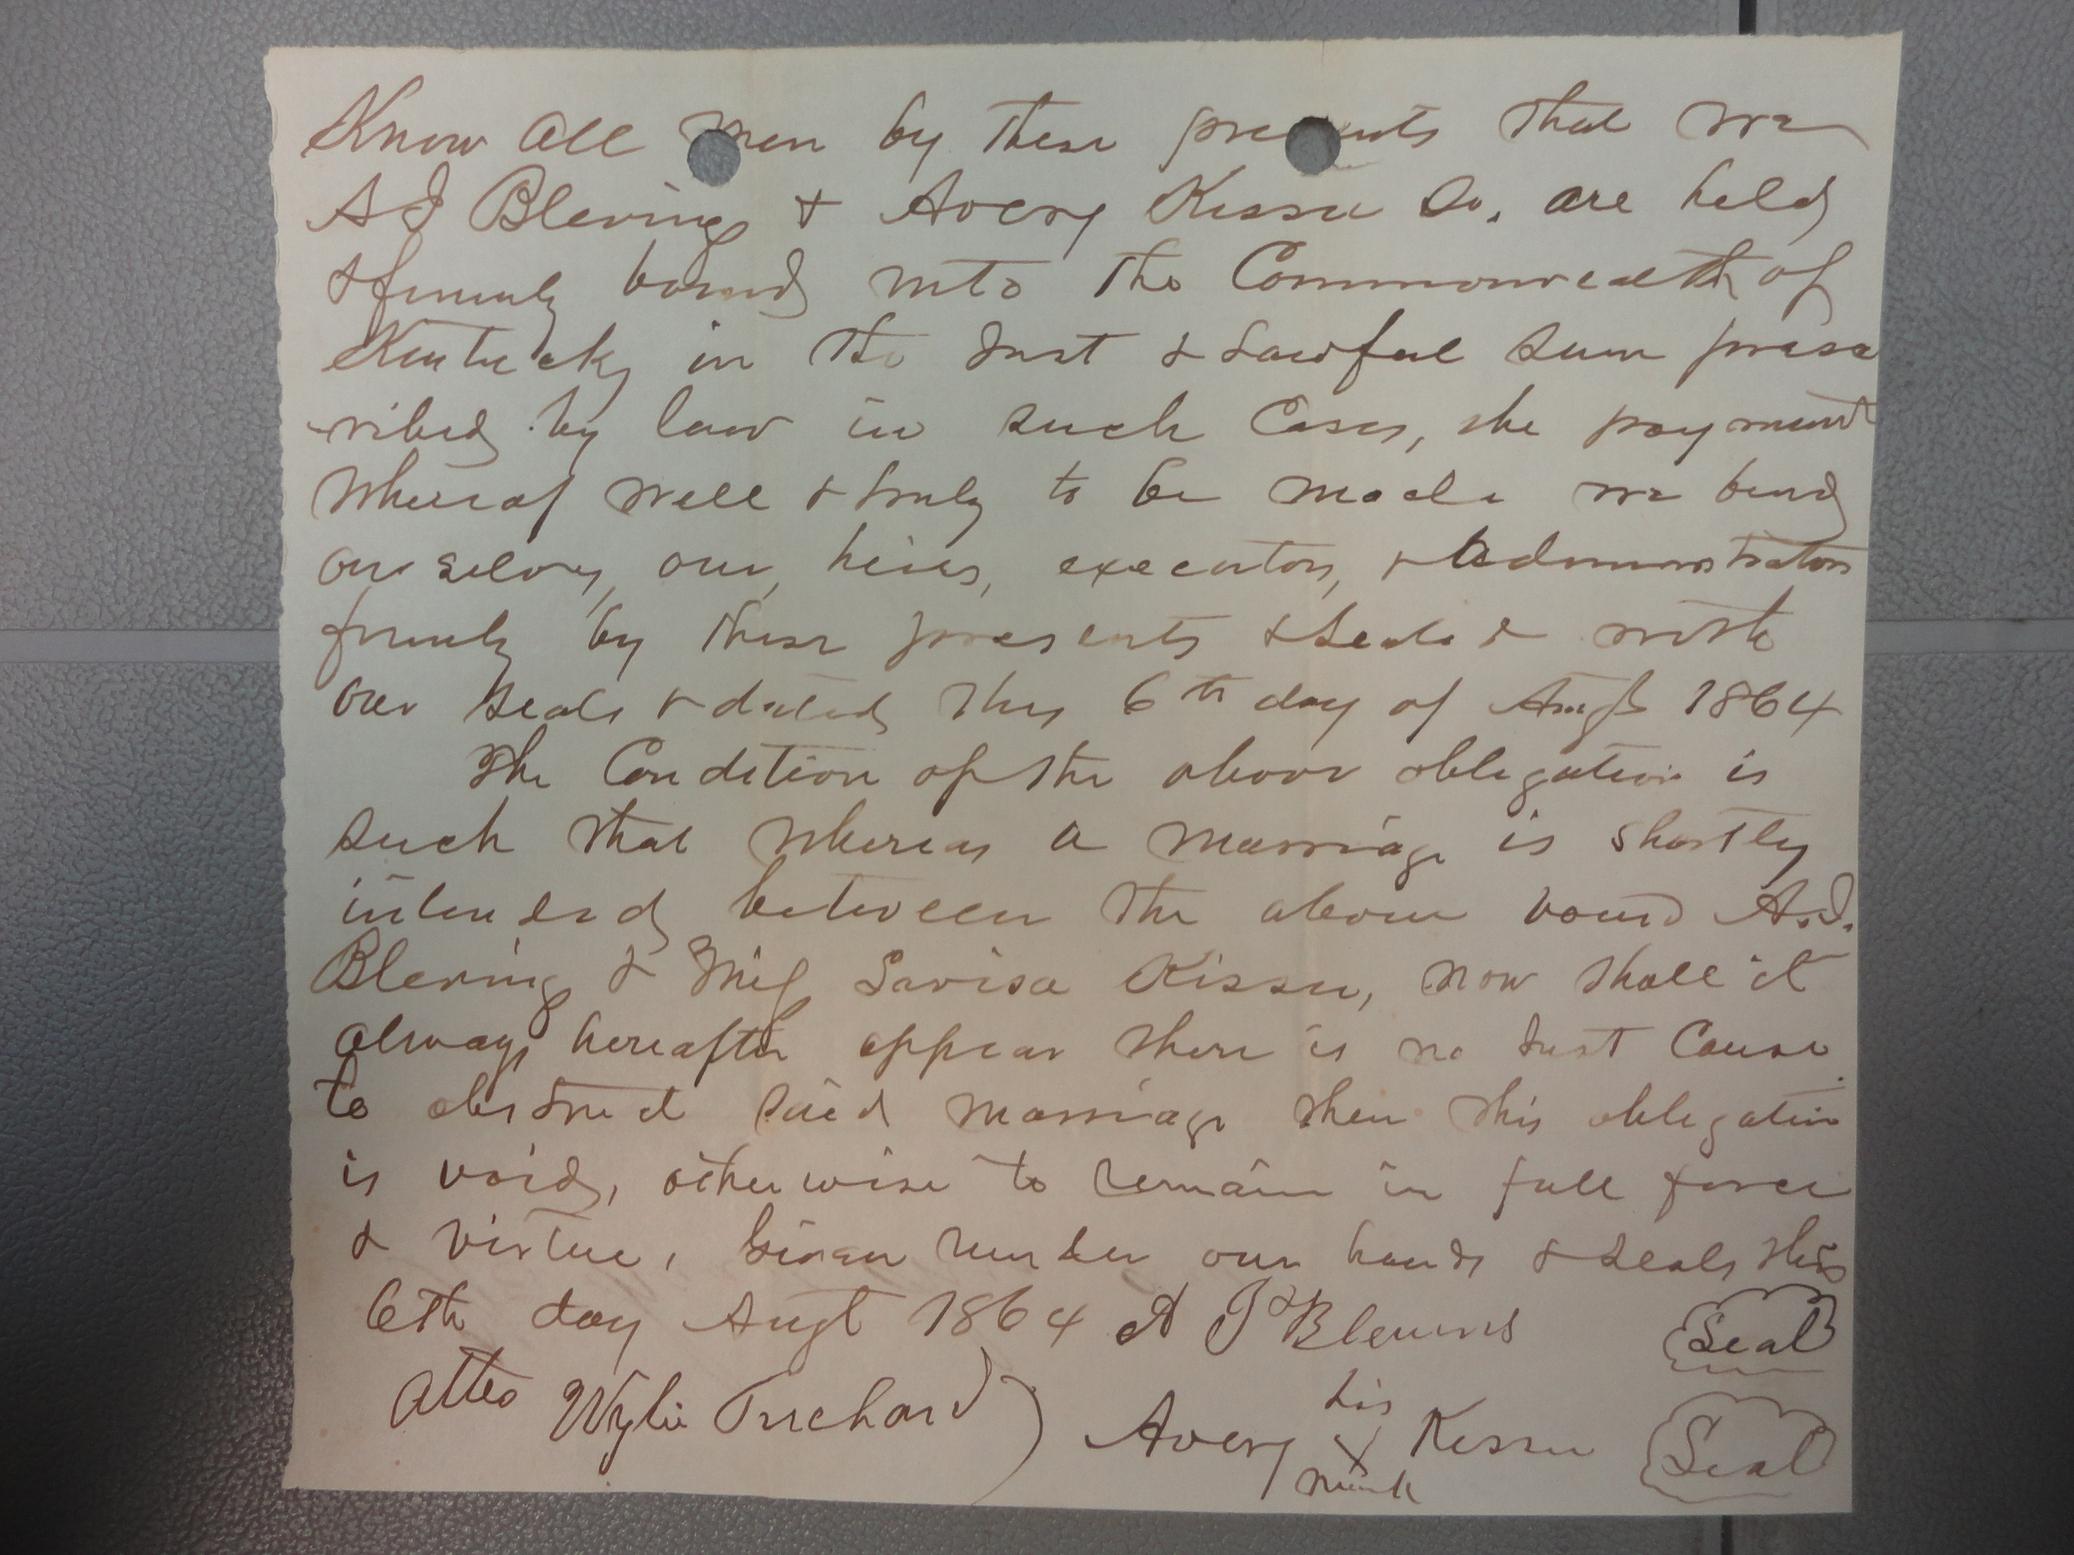 Know all men by these presents that we
A J Blevins & Avery Kissee Sr. are held
& firmly bound unto the Commonwealth of
Kentucky in the Just & Lawful Sum presc
ribed by law in such Cases, the payment
Whereof well & truly to be made we bind
ourselves, our, heirs, executors, & Administrators
firmly by these presents & Sealed with
our seals & dated this 6th day of Augt 1864
The Condition of the above obligation is
such that whereas a marriage is shortly
intended between the above bound A.J.
Blevins & Miss Lavisa Kissee, now shall it
always hereafter appear there is no Just Cause
to obstruct said marriage then this obligation
is void, otherwise to remain in full force
& virtue, Given under our hands & seals this
6th day Augt 1864 A J Blevins Seal
Attes Wylie Prichard ) Avery his X mark Kissee Seal